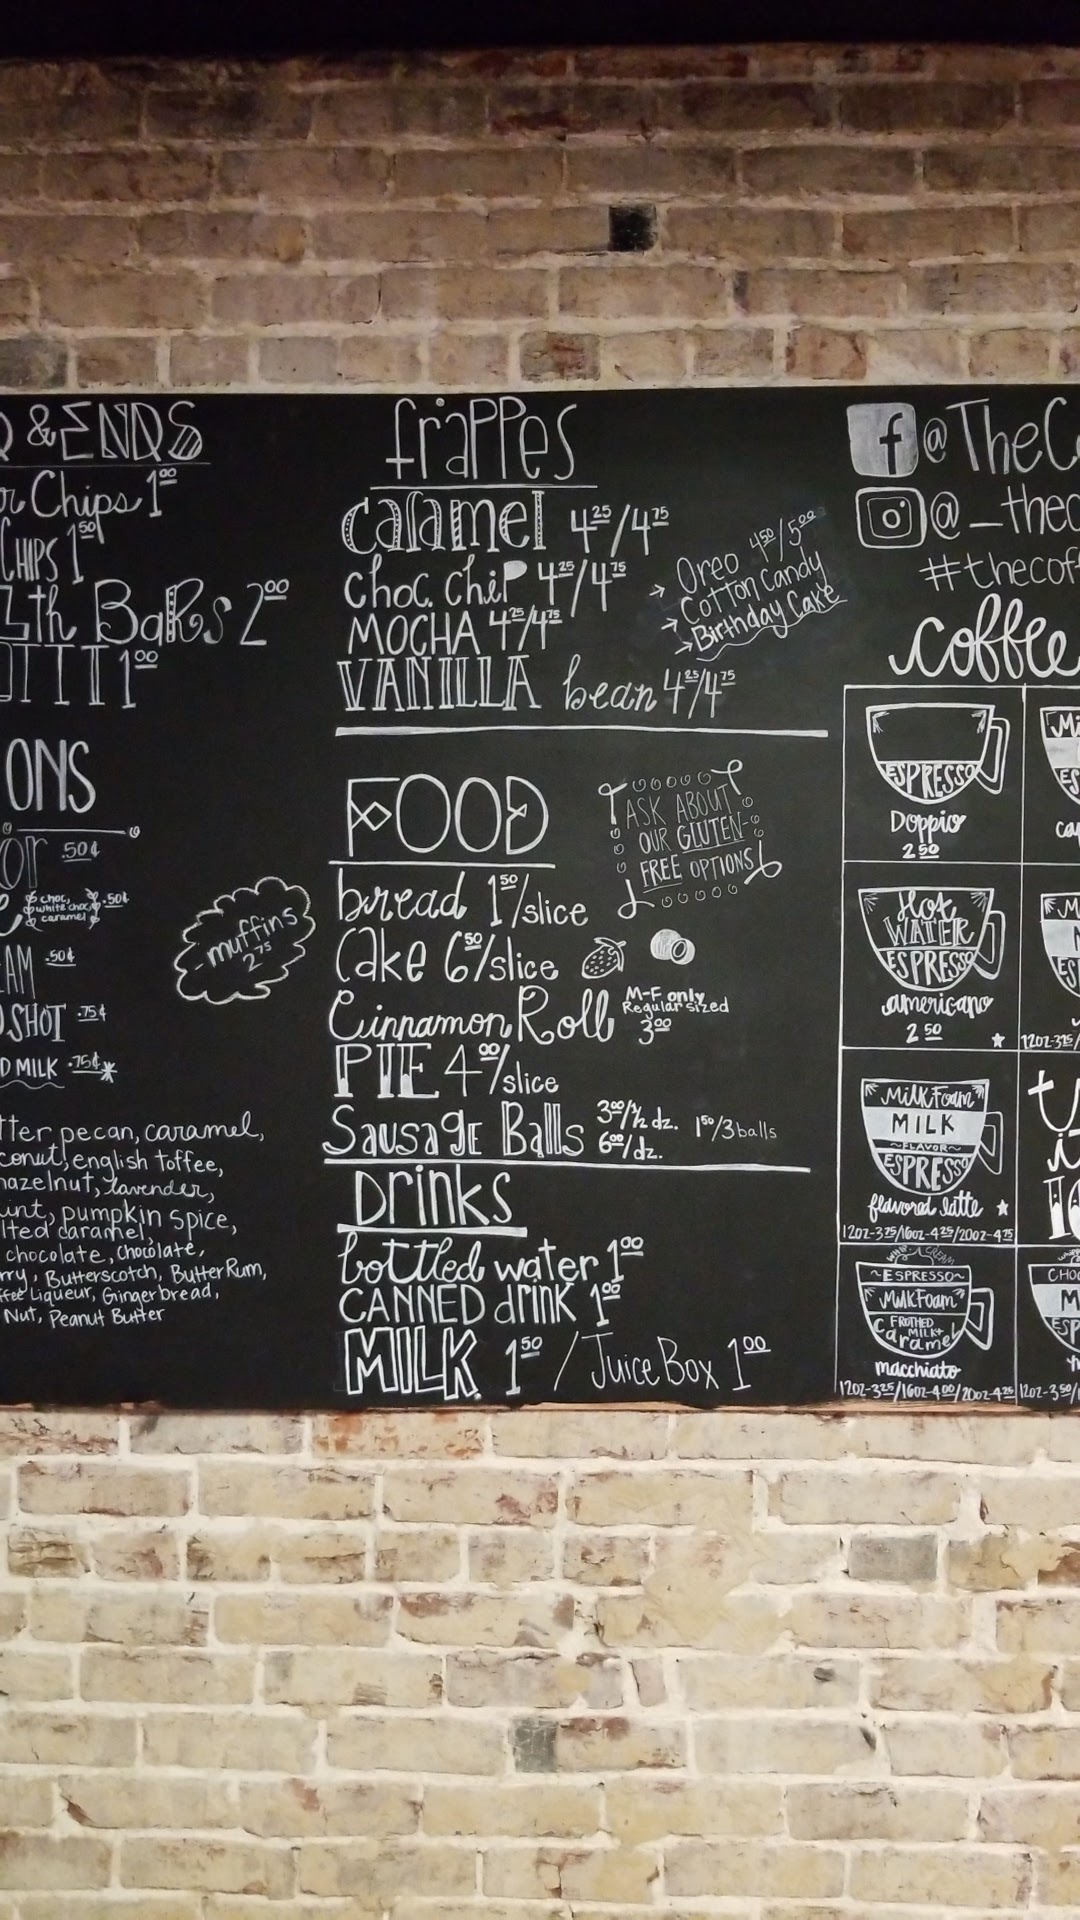 & ENDS
Chips 1.00
CHIPS 1.50
Lth BaRs 2.00
OTTI 1.00
ONS
or .50¢
choc,
white choc,
caramel
.50¢
AM .50¢
SHOT .75¢
D MILK .75¢*
muffins
2.75
tter pecan, caramel,
conut, english toffee,
hazelnut, lavender,
int, pumpkin spice,
lted caramel,
chocolate, chocolate,
rry, Butterscotch, Butter Rum,
ffee Liqueur, Gingerbread,
Nut, Peanut Butter
frappes
caramel 4.25/4.75
choc. chip 4.25/4.75
MOCHA 4.25/4.75
VANILLA bean 4.25/4.75
Oreo 4.50/5.00
Cotton Candy
Birthday Cake
FOOD
ASK ABOUT
OUR GLUTEN-
FREE OPTIONS!
bread 1.50/slice
Cake 6.50/slice
Cinnamon Roll M-F only Regular sized 3.00
PIE 4.00/slice
Sausage Balls 3.00/½ dz. 6.00/dz. 1.50/3 balls
Drinks
bottled water 1.00
CANNED drink 1.00
MILK 1.50 / Juice Box 1.00
f @TheC
@_thec
#thecof
coffee
ESPRESSO
Doppio
2.50
Hot
WATER
ESPRESSO
americano
2.50
Milk Foam
MILK
~FLAVOR~
ESPRESSO
flavored latte
12oz-3.75/16oz-4.25/20oz-4.75
WHIP CREAM
~ESPRESSO~
Milk Foam
FROTHED
MILK+
Caramel
macchiato
12oz-3.25/16oz-4.00/20oz-4.25
Mi
ES
cap
M
ES
12oz-3.25/
CHOC
M
ESP
12oz-3.50/